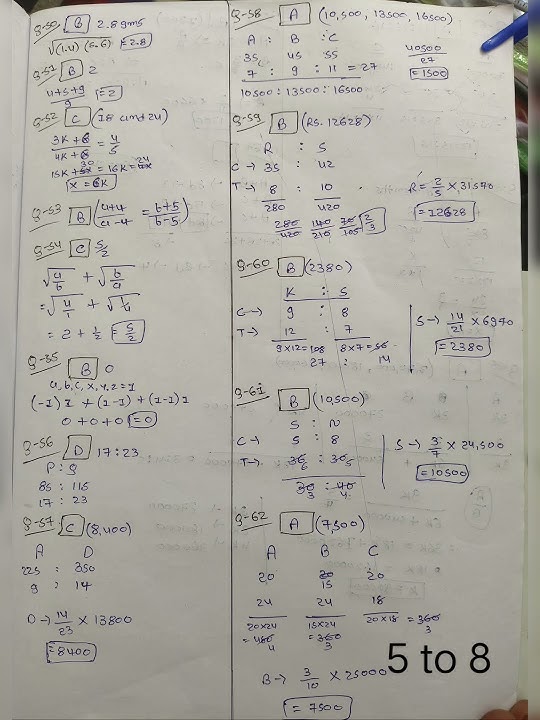 Q-50 B 2.8gms
√(1.4)(5.6) = 2.8
Q-51 B 2
4+5+9/9 = 2
Q-52 C (18 and 24)
3K+6/4K+6 = 4/5
15K+30 = 16K+24
x = 6K
Q-53 B (a+4/a-4 = b+5/b-5)
Q-54 C 5/2
√a/b + √b/a
= √4/1 + √1/4
= 2 + 1/2 = 5/2
Q-55 B 0
a,b,c,x,y,z = 1
(1-1)1 + (1-1) + (1-1)1
0+0+0 = 0
Q-56 D 17:23
P : Q
85 : 115
17 : 23
Q-57 C (8,400)
A D
225 : 350
9 : 14
D → 14/23 × 13800
= 8400
Q-58 A (10,500, 13500, 16500)
A : B : C
35 45 55
7 : 9 : 11 = 27
10500 : 13500 : 16500
40500/27
= 1500
Q-59 B (RS. 12628)
R : S
C → 35 : 42
T → 8 : 10
280 420
280/420 140/210 70/105 2/3
R = 2/5 × 31570
= 12628
Q-60 B (2380)
K : S
C → 9 : 8
T → 12 : 7
9×12 = 108 8×7 = 56
27 : 14
S → 14/21 × 6970
= 2380
Q-61 B (10,500)
S : N
C → 5 : 8
T → 36 6 : 30 5
30 3 : 40 4
S → 3/7 × 24,500
= 10500
Q-62 A (7,500)
A B C
20 20 15 20
24 24 18
20×24 15×24 20×18 = 360 3
= 480 4 = 360 3
B → 3/10 × 25000
= 7500
5 to 8